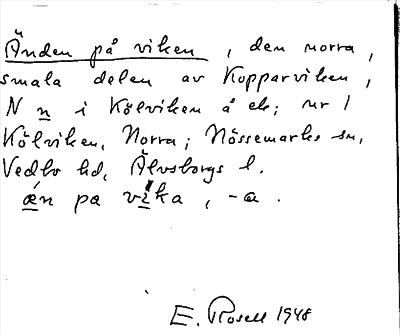 Änden på viken, den norra,
smala delen av Kopparviken,
N n i Kölviken å ek; nr 1
Kölviken, Norra; Nössemarks sn,
Vedbo hd, Älvsborgs l.
æ̀n pa vika, -a.
E. Rosell 1948